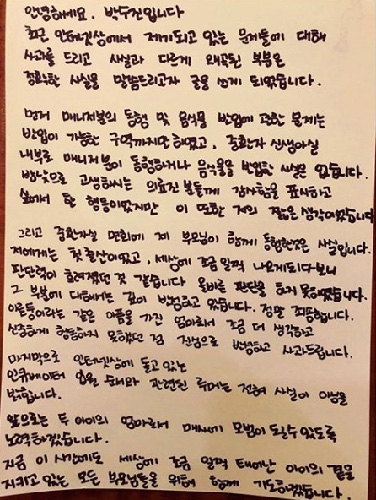 안녕하세요. 박수진입니다
최근 인터넷상에서 제기되고 있는 문제들에 대해
사과를 드리고 사실과 다르게 왜곡된 부분은
정확한 사실을 말씀드리고자 글을 쓰게 되었습니다.
먼저 매니저분의 동행 및 음식물 반입에 관한 문제는
반입이 가능한 구역까지만 하였고, 중환자 신생아실
내부로 매니저분이 동행하거나 음식물을 반입한 사실은 없습니다.
밤낮으로 고생하시는 의료진 분들께 감사함을 표시하고
싶어서 한 행동이었지만 이 또한 저의 짧은 생각이었습니다
그리고 중환자실 면회에 제 부모님이 함께 동행한것은 사실입니다.
저에게는 첫 출산이었고, 세상에 조금 일찍 나오게되다보니
판단력이 흐려졌던 것 같습니다 올바른 판단을 하지 못하였습니다.
그 부분에 대해서는 깊이 반성하고 있습니다. 정말 죄송합니다.
이른둥이라는 같은 아픔을 가진 엄마로서 조금 더 생각하고
신중하게 행동하지 못했던 점 진심으로 반성하고 사과드립니다.
마지막으로 인터넷상에 돌고 있는
인큐베이터 입원 순서와 관련된 루머는 전혀 사실이 아님을
밝힙니다.
앞으로는 두 아이의 엄마로서 매사에 모범이 되도록
노력하겠습니다.
지금 이 시간에도 세상에 조금 일찍 태어난 아이의 곁을
지키고 있는 모든 부모님들을 위해 함께 기도하겠습니다.